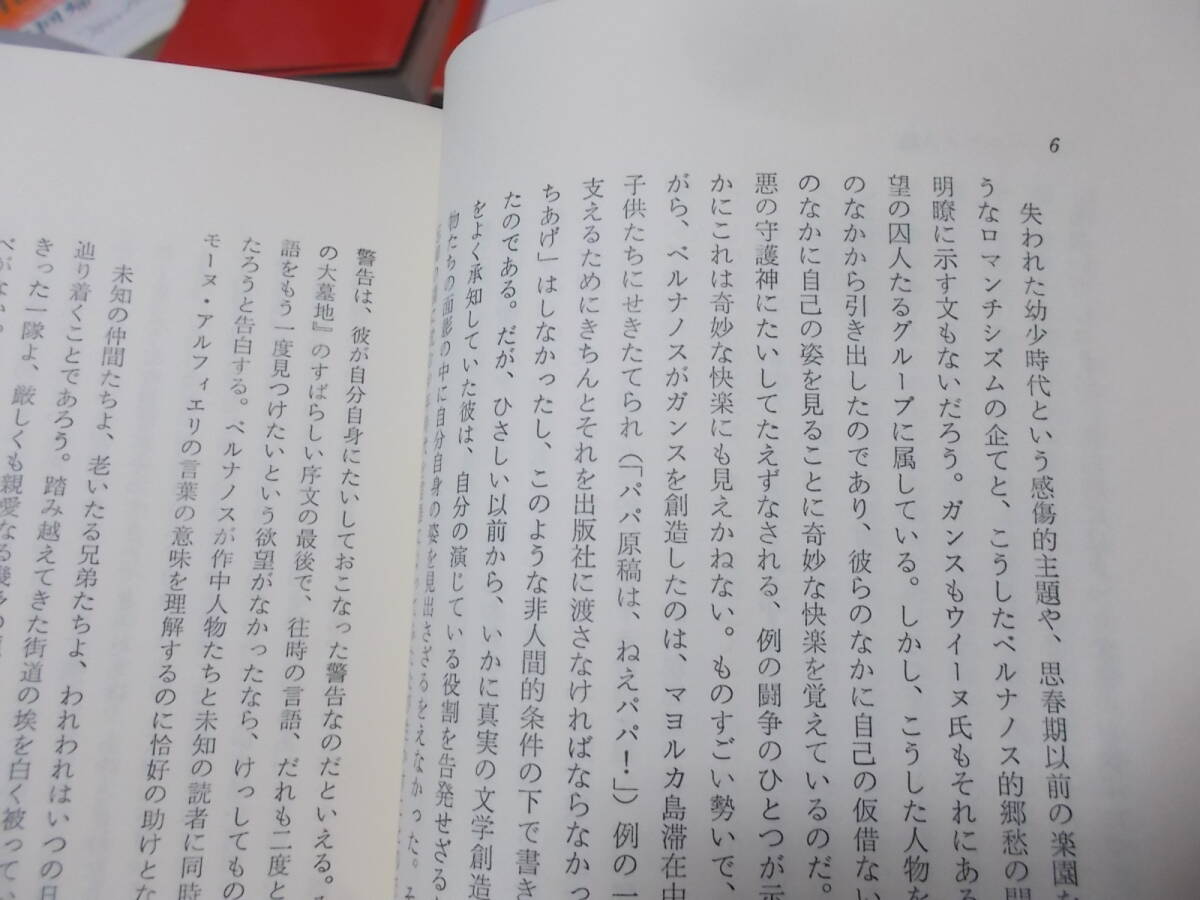 6
失われた幼少時代という感傷的主題や、思春期以前の楽園
うなロマンチシズムの企てと、こうしたベルナノス的郷愁の間
明瞭に示す文もないだろう。ガンスもウイーヌ氏もそれにある
望の囚人たるグループに属している。しかし、こうした人物を
のなかから引き出したのであり、彼らのなかに自己の仮借ない
のなかに自己の姿を見ることに奇妙な快楽を覚えているのだ。
悪の守護神にたいしてたえずなされる、例の闘争のひとつが示
かにこれは奇妙な快楽にも見えかねない。ものすごい勢いで、
がら、ベルナノスがガンスを創造したのは、マヨルカ島滞在中
子供たちにせきたてられ(「パパ原稿は、ねえパパ!」)例の一
支えるためにきちんとそれを出版社に渡さなければならなかっ
ちあげ」はしなかったし、このような非人間的条件の下で書き
たのである。だが、ひさしい以前から、いかに真実の文学創造
をよく承知していた彼は、自分の演じている役割を告発せざる
物たちの面影の中に自分自身の姿を見出さざるをえなかった。
警告は、彼が自分自身にたいしておこなった警告なのだといえる。
の大墓地』のすばらしい序文の最後で、往時の言語、だれも二度と
語をもう一度見つけたいという欲望がなかったなら、けっしてもの
たろうと告白する。ベルナノスが作中人物たちと未知の読者に同時
モーヌ・アルフィエリの言葉の意味を理解するのに恰好の助けとな
未知の仲間たちよ、老いたる兄弟たちよ、われわれはいつの日
辿り着くことであろう。踏み越えてきた街道の埃を白く被って
きった一隊よ、厳しくも親愛なる